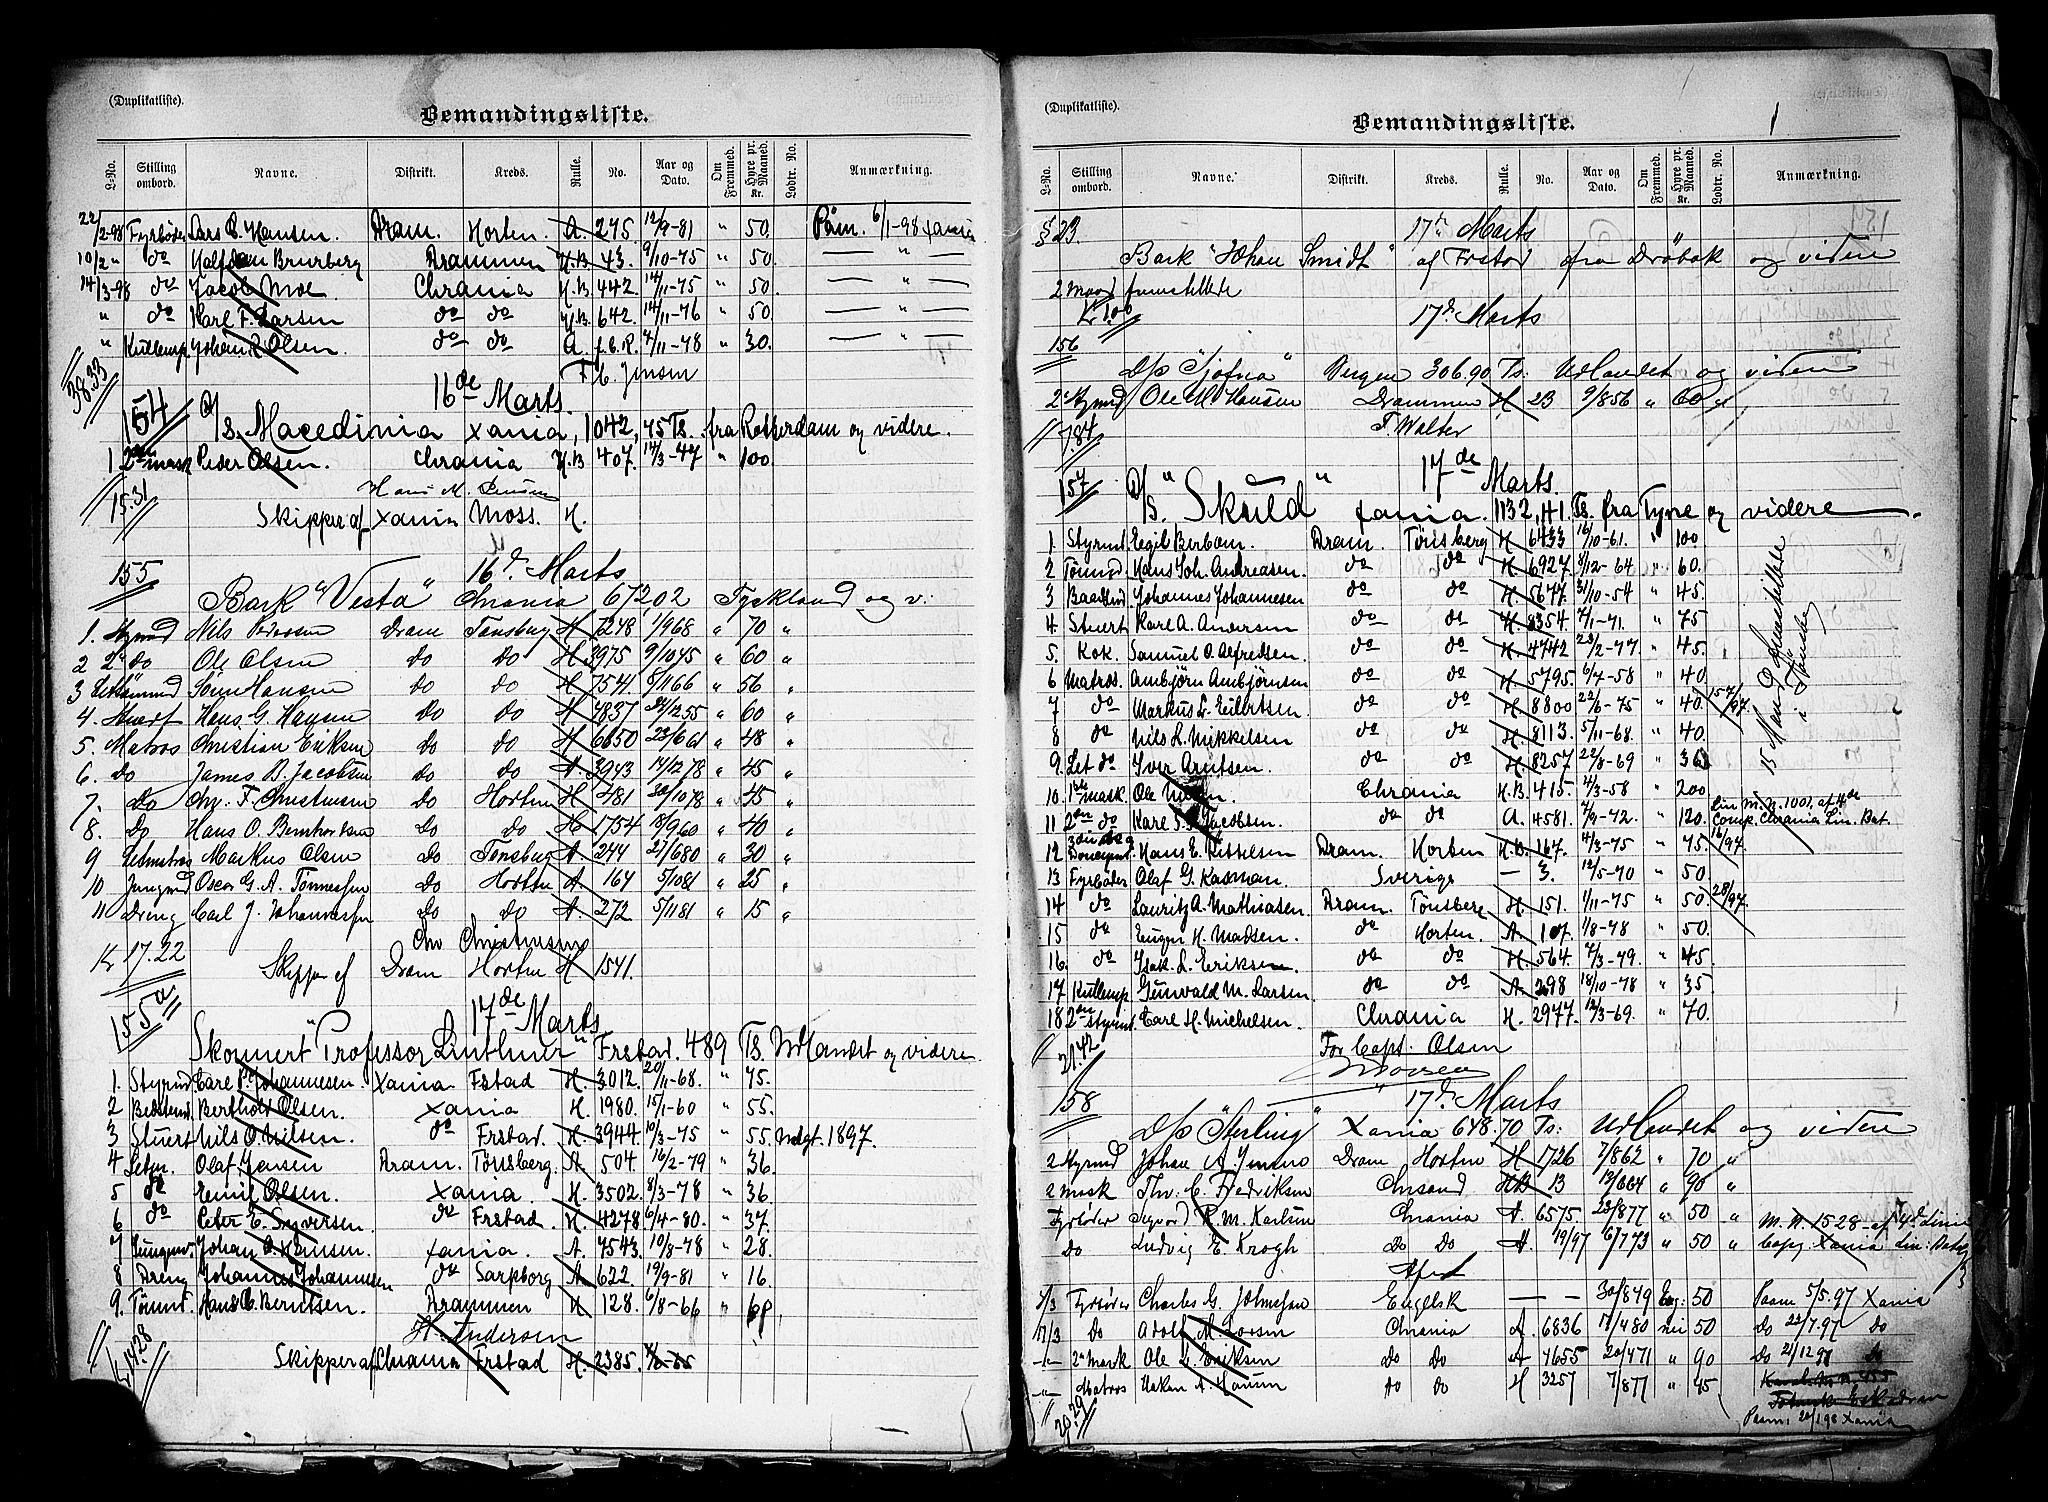 (Duplikatliste).
Bemandingsliste.
L-No. Stilling ombord. Navne. Distrikt. Kreds. Rulle. No. Aar og Dato. Om Fremmed. Hyre pr. Maaned. Kr. Lodtr. No. Anmærkning.
22/2-98 Fyrböder Lars C. Hansen. Dram. Horten. A. 275. 12/9-81 " 50. Paam. 6/1-98 Xania
10/2 " do Halfdan Brurberg Drammen H.B. 43. 9/10-75 " 50. — " —
14/3-98 do Jacob Moe Chrania H.B. 442. 14/11-75 " 50. — " —
" do Karl F. Larsen do do H.B. 642. 14/11-76 " 50. — " —
" Kullemp. Johan R. Olsen. do do A. f.C.R. 7/11-78 " 30. — " —
38.33 F. C. Jensen
154 16de Marts.
D/S. Macedinia Xania, 1042,75 Ts. fra Rotterdam og videre.
1 2den mask Peder Olsen. Chrania H.B 407. 14/3-47 " 100.
15.31 Hans M. Jensen
Skipper af Xania Moss. H.
155 16de Marts
Bark "Vesta" Chrania 67202 Tyskland og v:
1. Styrmd Nils Pedersen Dram Tønsberg H 7248 1/968 " 70 "
2 2' do Ole Olsen do do H 3975 9/1045 " 60 "
3 Sønn Hansen do do H 7541 8/1166 " 56 "
4. Stuert Hans G. Hansen do do H 4837 24/1255 " 60 "
5. Matros Christian Eriksen do do H 6650 23/661 " 48 "
6. do James B. Jacobsen do do A. 3943 14/1278 " 45 "
7. do Chr. F. Christensen do Horten H 481 30/1078 " 45 "
8. do Hans O. Bernhordsen do do H 1754 18/960 " 40 "
9 Letmatros Markus Olsen do Tønsberg A 244 27/680 " 30 "
10 Jungmd Oscar G. A. Tønnessen do Horten A. 164 5/1081 " 25 "
11 Dreng Carl J. Johannessen do do A 272 5/1181 " 15 "
Kr 17.22 Chr Christensen
Skipper af Dram Horten H 1541.
155a 17de Marts
Skonnert "Professor Linthner" Frstad. 489 Ts. Udlandet og videre.
1. Styrmd Carl P. Johannesen. Xania Fstad H. 3012. 20/11-68. " 75.
2 Bedstmd. Berthold Olsen. Xania H. 1980. 15/1-60 " 55.
3 Stuert Nils O. Nilsen. do Frstad. H. 3944. 10/3-75 " 55. Udgt. 1897.
4 Letm. Olaf Jensen Dram. Tönsberg. A. 504. 16/2-79 " 36.
5 do Emil Olsen. Xania. H. 3502. 8/3-78 " 36.
6 do Peter E. Syversen. do Frstad. H. 4278. 6/4-80. " 37.
7 Jungmd. Johan A. Hansen. Xania. A. 7543. 10/8-78 " 28.
8 Dreng Johannes Johannesen do Sarpborg A. 622. 19/9-81 " 16.
9. Tömmd. Hans C. Berntsen. Drammen H 128. 6/8-66 " 60.
Kr. 14.28 H. Andersen
Skipper af Chrania Frstad H. 2385.
(Duplikatliste).
1
Bemandingsliste.
L-No. Stilling ombord. Navne. Distrikt. Kreds. Rulle. No. Aar og Dato. Om Fremmed. Hyre pr. Maaned. Kr. Lodtr. No. Anmærkning.
§23. 17de Marts
Bark "Johan Smidt" af Frstad fra Dröbak og videre
2 Mand fremstillede
Kr 1.00 17de Marts
156
D/S "Sjofna" Bergen 306.90 Ts: Udlandet og videre
2' Styrmd Ole M Hansen Drammen H 23 9/856 " 60
7.84 F. Walter
157 17de Marts.
D/S. "Skuld" Xania. 1132,41. Ts. fra Tyne og videre.
1. Styrmd. Eegil Berbom. Dram. Tönsberg H. 6433 16/10-61. " 100
2 Tömmd. Hans Joh. Andreasen. do do H. 6927. 8/12-64 " 60.
3 Baadsmd. Johannes Johannesen do do H. 5677. 31/10-54 " 45.
4. Stuert Karl A. Andersen do do H. 8354. 7/1-71. " 75
5. Kok. Samuel O. Alfredsen. do do H. 4742 23/2-77. " 45.
6 Matros. Ambjörn Ambjörnsen do do H. 5795. 6/4-58 " 40
7 do Markus L. Eilertsen. do do H. 8800 22/6-75 " 40. 157/97.
8 do Nils L. Mikkelsen do do H. 8113. 5/11-68. " 40.
9. Let do Iver Arntsen. do do H. 8257 22/8-69 " 36
10. 1ste mask. Ole Chrania H.B. 415. 2/3-58 " 200
11 2den do Karl S. Jacobsen. do do A. 4581. 7/9-72. " 120. Lin. M. N. 1001. af 4de Comp. Chrania Lin. Bat.
12 3die do og Donkeymd. Hans E. Kittelsen Dram. Horten H.B. 167. 4/3-75 " 75. 16/97.
13 Fyrböder Olaf G. Kasman. Sverige — 3. 12/5-70 " 50.
14 do Lauritz A. Mathiasen. Dram. Tönsberg H. 151. 1/11-75 " 50. 28/97.
15 do Eugen H. Madsen. do Horten. A. 107. 1/8-78 " 50.
16. do Isak. L. Eriksen. do do H. 564. 7/3-79. " 45.
17 Kullemp. Gunvald M. Larsen. do do A. 298 18/10-78 " 35
18 2den styrmd. Carl H. Michelsen. Chrania H. 2977. 12/3-69. " 70.
15 Mand fremstillede i Tönsberg
21.42 For Capt. Olsen
158 17de Marts
D/S "Sterling" Xania 648.70 Ts: Udlandet og videre
2 Styrmd Johan A. Dram Horten H 1726 7/862 " 70 "
2 Mask Thv. C. Fredriksen Chrsand HB 13 13/664 " 90 "
Fyrböder Sigvord R. M. Karlsen Chrania A. 6575. 23/877 " 50 " M. N. 1528 af 4de Linie
do Ludvig E. Krogh do do A. 19/97 6/773 " 50 " Comp Xania Lin: Bat
Afgd
Fyrböder Charles G. Johnsson Engelsk — — 30/849 Eng: 50 Paam 5/5.97 Xania
17/3 do Adolf M. Larsen Chrania A. 6836 17/480 nei 50 Do 22/7.97 Do
— 2' Mask Ole L. Eriksen do do A 4655 20/471 " 90 Do 21/12 97 Do
— Matros Haken A. Hansen do do H 3257 7/877 " 45
Paam: 20/1.98 Xania
20.29